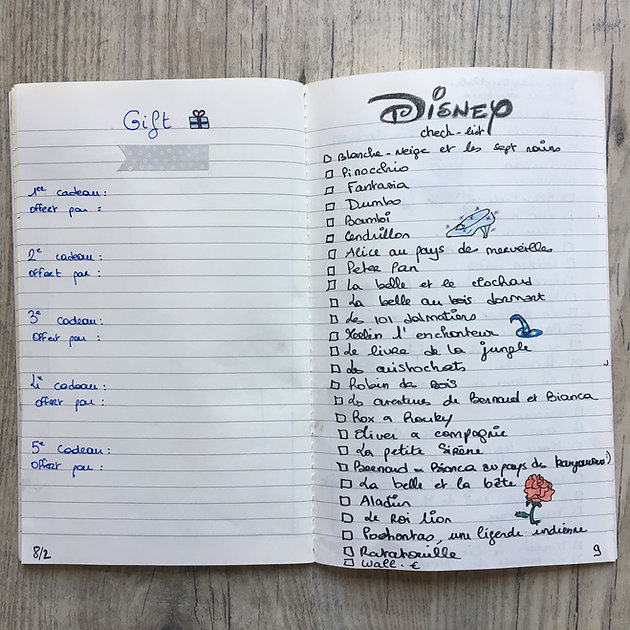 Gift
1er cadeau :
offert par :
2e cadeau :
offert par :
3e cadeau :
offert par :
4e cadeau :
offert par :
5e cadeau :
offert par :
8/2
Disney
check-list
Blanche-Neige et les sept nains
Pinocchio
Fantasia
Dumbo
Bambi
Cendrillon
Alice au pays des merveilles
Peter Pan
La belle et le clochard
La belle au bois dormant
Les 101 dalmatiens
Merlin l'enchanteur
Le livre de la jungle
Les aristochats
Robin des Bois
Les aventures de Bernard et Bianca
Rox et Rouky
Oliver et compagnie
La petite Sirène
Bernard et Bianca au pays des kangourous
La belle et la bête
Aladin
Le Roi lion
Pochontas, une légende indienne
Ratatouille
Wall-E
9